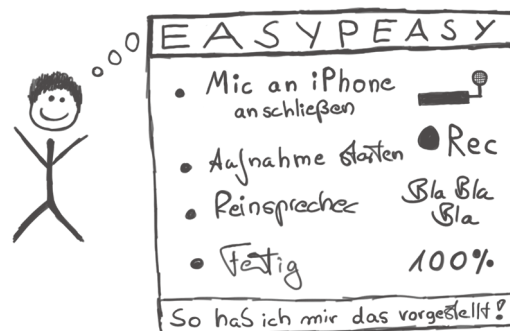 EASYPEASY
• Mic an iPhone
anschließen
• Aufnahme starten ● Rec
• Reinsprechen Bla Bla
Bla
• Fertig 100%
So hab ich mir das vorgestellt!